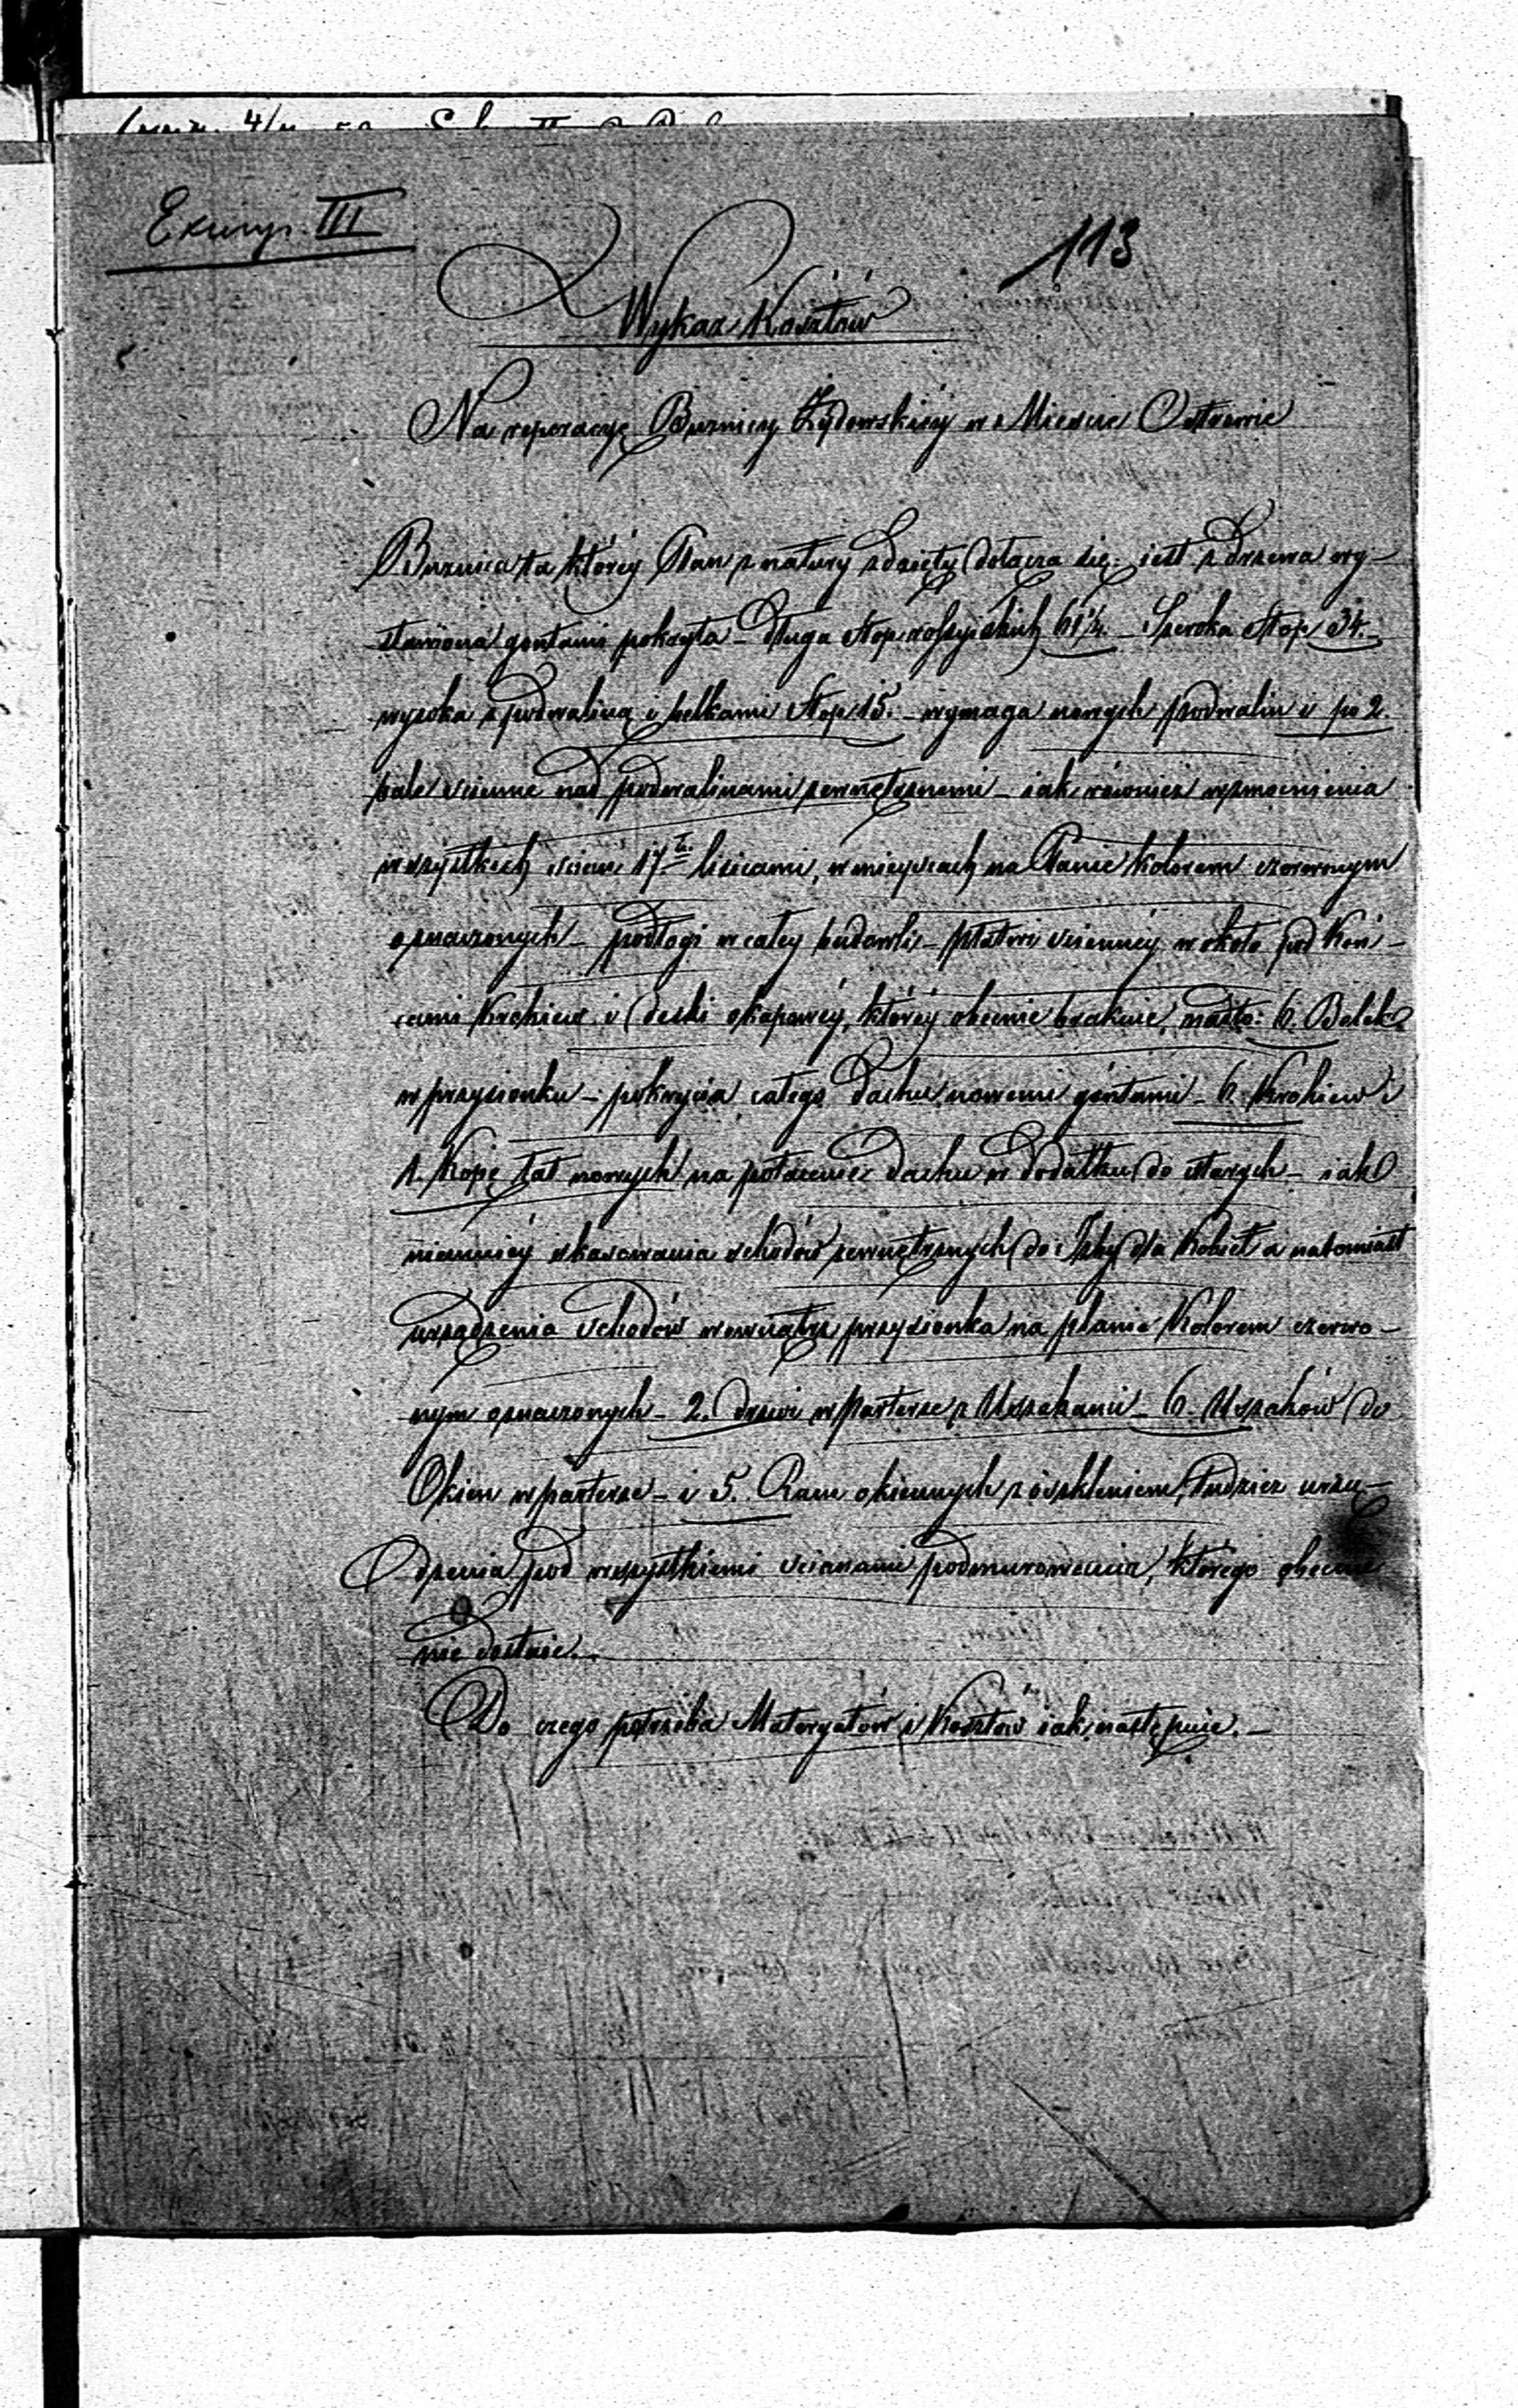 Exemp. III
113
Wykaz Kosztów
Na reperacyę Buznicy Żydowskiéy w Mieście Ostrowie
Buznica ta któréy Plan z natury zdjęty dołącza się: iest z drzewa wy-
stawiona gontami pokryta - długa Stop rossyiskich 61¼ - Szeroka Stop 34. -
wysoka z podwaliną i belkami Stop 15. - wymaga nowych podwalin i po 2.
bale scienne nad podwalinami zewnętrznemi - iak również wzmocnienia
wszystkich scian 17tu lisicami, w mieyscach na Planie kolorem czerwonym
oznaczonych - podłogi w całey budowli - płatwi sciennéy w około pod Koń-
cami Krokiew i deski okapowéy, któréy obecnie brakuie, 6. Belek
w przysionku - pokrycia całego Dachu nowemi gontami - 6. Krokiew i
1. Kopę łat nowych na połacenie dachu w dodatku do starych - iak
niemniéy skasowania schodów zewnętrznych do Izby dla Kobiet a natomiast
urządzenia Schodów wewnątrz przysionka na planie Kolorem czerwo-
nym oznaczonych - 2. drzwi w Parterze z Uszakami - 6. Uszaków do
Okien w parterze - i 5. Ram okiennych z oszkleniem, tudzież urzą-
dzenia pod wszystkiemi scianami podmurowania, którego obecnie
nie dostaie. -
Do czego potrzeba Materyałów i Kosztów iak następuie. -